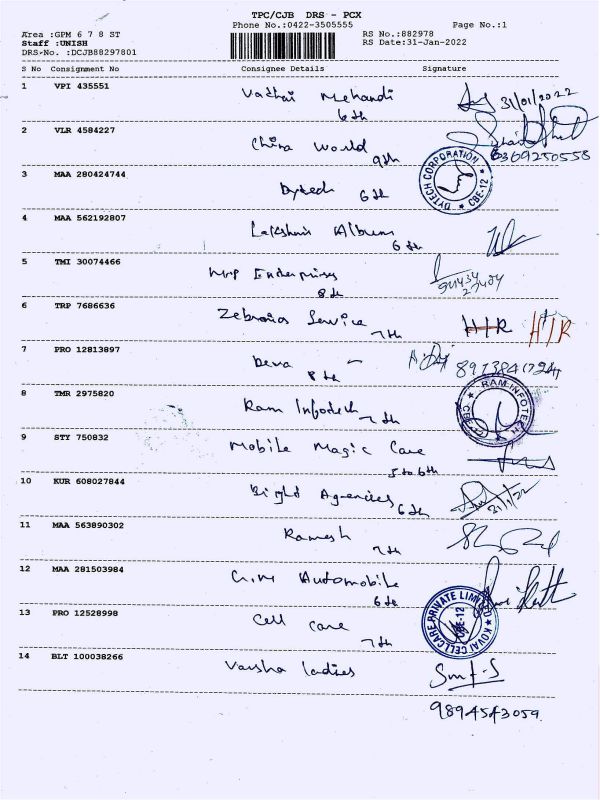 TPC/CJB DRS - PCX
Phone No.:0422-3505555 Page No.:1
Area :GPM 6 7 8 ST RS No.:882978
Staff :UNISH RS Date:31-Jan-2022
DRS-No. :DCJB88297801
S No Consignment No Consignee Details Signature
1 VPI 435551 Vadhai Mehandi 31/01/2022
6th
2 VLR 4584227 China World
9th 6369250558
DYTECH CORPORATION CBE-12
3 MAA 280424744 Dytech 6th
4 MAA 562192807 Lakshmi Album
6th
5 TMI 30074466 MRP Enterprises
8th
6 TRP 7686636 Zebronics Service H/R H/R
7th
7 PRO 12813897 Deva
8th
8 TMR 2975820 Ram Infotech 7th RAM INFOTECH
9 STY 750832 Mobile Magic Care
5 to 6th
10 KUR 608027844 Bright Agencies 6th 31/1/22
11 MAA 563890302 Ramesh
7th
12 MAA 281503984 Automobile
6th
13 PRO 12528998 Cell Care KOVAI CELL CARE PRIVATE LIMITED CBE-12
7th
14 BLT 100038266 Varsha ladies
9894543059